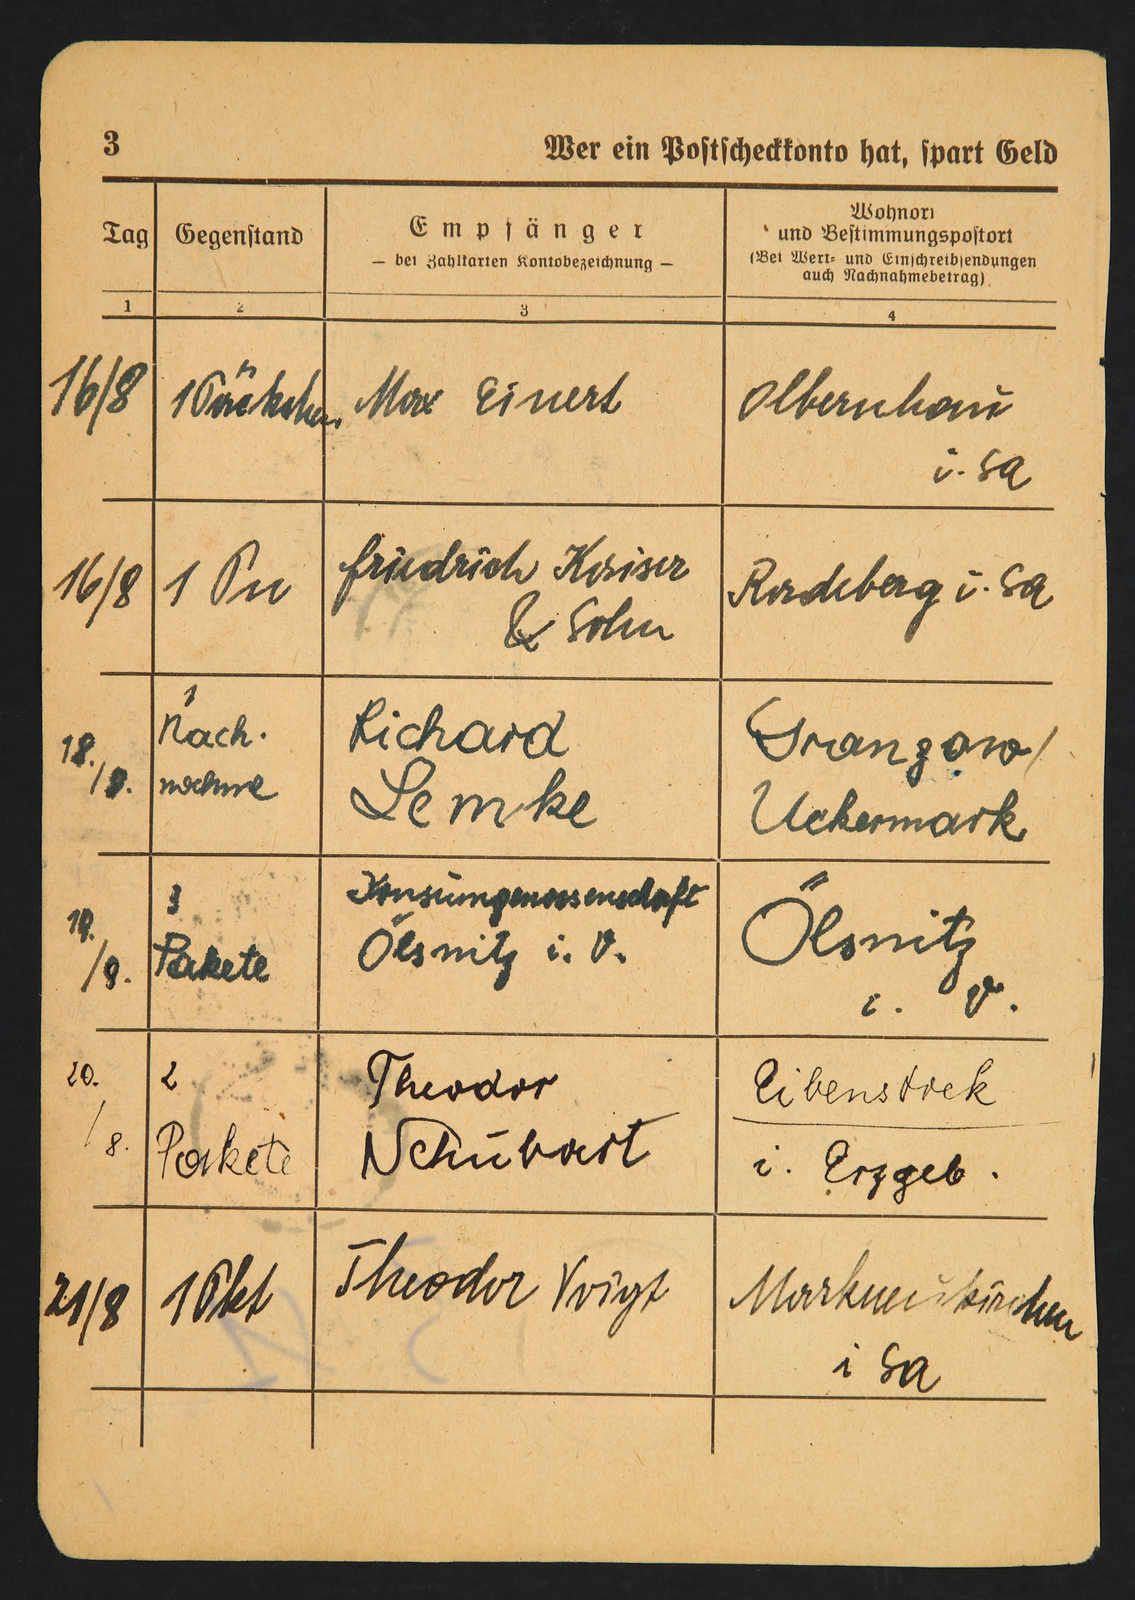 3
Wer ein Postscheckkonto hat, spart Geld
Tag
Gegenstand
Empfänger
— bei Zahlkarten Kontobezeichnung —
Wohnort
und Bestimmungspostort
(Bei Wert- und Einschreibsendungen
auch Nachnahmebetrag)
1
2
3
4
16/8
1 Päckchen
Max Einert
Olbernhau
i. Sa
16/8
1 Pu
Friedrich Kaiser
& Sohn
Radeberg i. Sa
18.
/8.
1
Nach-
nahme
Richard
Lemke
Drangow/
Uckermark
19.
/8.
3
Pakete
Konsumgenossenschaft
Ölsnitz i. V.
Ölsnitz
i. V.
20.
/8.
2
Pakete
Theodor
Schubart
Eibenstock
i. Erzgeb.
21/8
1 Pkt
Theodor Voigt
Markneukirchen
i Sa